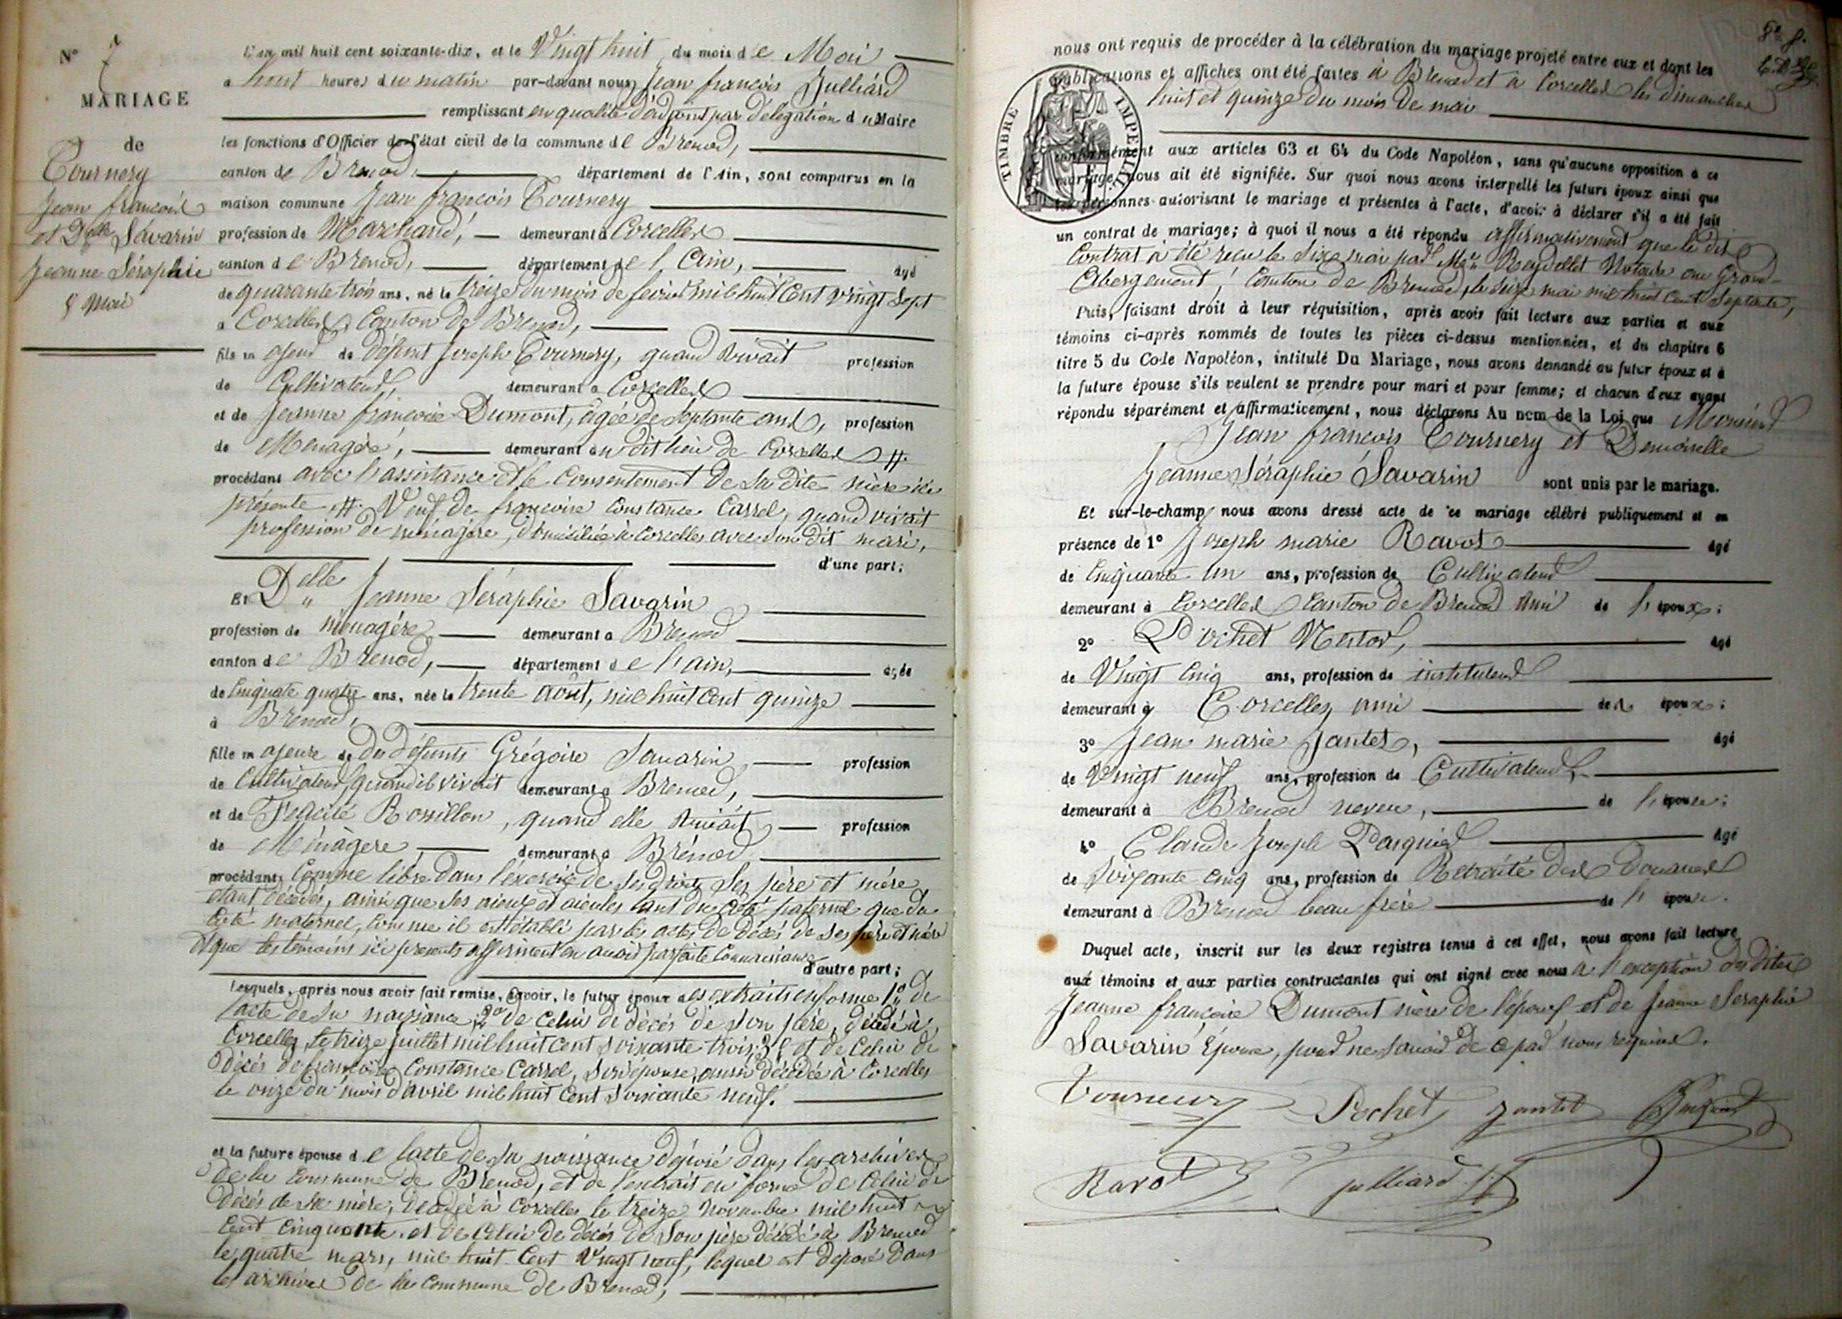 N° 7
MARIAGE
de
Tournery
Jean françois
et Delle Savarin
Jeanne Séraphie
Mai
L'an mil huit cent soixante-dix, et le Vingt huit du mois de Mai
a huit heures du matin par-devant nous Jean françois Julliard
remplissant en qualité d'adjoint par délégation du Maire
les fonctions d'Officier de l'état civil de la commune de Brenod,
canton de Brenod, département de l'Ain, sont comparus en la
maison commune Jean françois Tournery
profession de Marchand, demeurant à Corcelles
canton de Brenod, département de l'Ain, âgé
de quarante trois ans, né le treize du mois de février mil huit Cent vingt Sept
a Corcelles, Canton de Brenod,
fils majeur de défunt Joseph Tournery, quand vivait profession
de Cultivateur, demeurant a Corcelles
et de Jeanne françoise Dumont, âgée de Septante ans, profession
de Menagère, demeurant au dit lieu de Corcelles #
procédant avec l'assistance et le Consentement de Sa dite mère ici
présente #. Veuf de françoise Constance Carrel, quand vivait
profession de ménagère, domiciliée à Corcelles avec son dit mari,
d'une part;
Et Delle Jeanne Séraphie Savarin
profession de menagère demeurant a Brenod
canton de Brenod, département de l'ain, âgée
de Cinquate quatre ans, née le trente août, mil huit cent quinze
à Brenod,
fille majeure de du défunts Grégoire Savarin profession
de Cultivateur, quand il vivait demeurant a Brenod,
et de Félicité Rossillon, quand elle vivait profession
de Ménàgère demeurant a Brénod
procédant Comme libre dans l'exercice de Ses droits Ses père et mère
étant décédés, ainsi que Ses aieuls et aieules tant du Coté paternel que du
Coté maternel, Comme il est établi par les actes de décès de Ses père et mère
et que les témoins ici présents affirment en avoir parfaite Connaissance
d'autre part;
Lesquels, après nous avoir fait remise, savoir, le futur époux des extraits en forme 1° de
l'acte de Sa naissance, 2° de Celui de décès de Son père, décédé à
Corcelles, le treize juillet mil huit cent soixante trois, 3° et de Celui de
décès de françoise Constance Carrel, Son épouse, aussi décédée à Corcelles
le onze du mois d'avril mil huit Cent Soixante neuf.
et la future épouse de l'acte de Sa naissance déposé dans les archives
de la Commune de Brenod, et de l'extrait en forme de Celui de
décès de Sa mère, décédée à Corcelles le treize Novembre mil huit
Cent Cinquante, et de Celui de décès de Son père décédé à Brenod
le quatre mars, mil huit Cent Vingt neuf, lequel est déposé dans
les archives de la Commune de Brenod,
nous ont requis de procéder à la célébration du mariage projeté entre eux et dont les
publications et affiches ont été faites à Brenod et à Corcelles les dimanches
huit et quinze du mois de mai
TIMBRE IMPERIAL
conformément aux articles 63 et 64 du Code Napoléon, sans qu'aucune opposition a ce
mariage nous ait été signifiée. Sur quoi nous avons interpellé les futurs époux ainsi que
les personnes autorisant le mariage et présentes à l'acte, d'avoir à déclarer s'il a été fait
un contrat de mariage; à quoi il nous a été répondu affirmativement que le dit
Contrat à été reçu le Seize mai par Me Reydellet Notaire au Grand
Abergement, Canton de Brenod, le Seize mai mil huit Cent Septante,
Puis, faisant droit à leur réquisition, après avoir fait lecture aux parties et aux
témoins ci-après nommés de toutes les pièces ci-dessus mentionnées, et du chapitre 6
titre 5 du Code Napoléon, intitulé Du Mariage, nous avons demandé au futur époux et à
la future épouse s'ils veulent se prendre pour mari et pour femme; et chacun d'eux ayant
répondu séparément et affirmativement, nous déclarons Au nom de la Loi que Monsieur
Jean françois Tournery et Demoiselle
Jeanne Séraphie Savarin sont unis par le mariage.
Et sur-le-champ nous avons dressé acte de ce mariage célébré publiquement et en
présence de 1° Joseph marie Ravot âgé
de Cinquante un ans, profession de Cultivateur
demeurant à Corcelles Canton de Brenod Ami de l'époux;
2° Pochet Nestor, âgé
de Vingt Cinq ans, profession de instituteur
demeurant à Corcelles, ami de l'époux;
3° Jean marie Jantet, âgé
de Vingt neuf ans, profession de Cultivateur,
demeurant à Brenod neveu, de l'épouse;
4° Claude Joseph Pasquier âgé
de Soixante Cinq ans, profession de Retraité des Douanes
demeurant à Brenod beau frère de l'épouse.
Duquel acte, inscrit sur les deux registres tenus à cet effet, nous avons fait lecture
aux témoins et aux parties contractantes qui ont signé avec nous à l'exception des dites
Jeanne françoise Dumont mère de l'époux et de Jeanne Séraphie
Savarin Épouse, pour ne savoir de ce par nous requises.
Tournery Pochet Jantet
Ravot Julliard